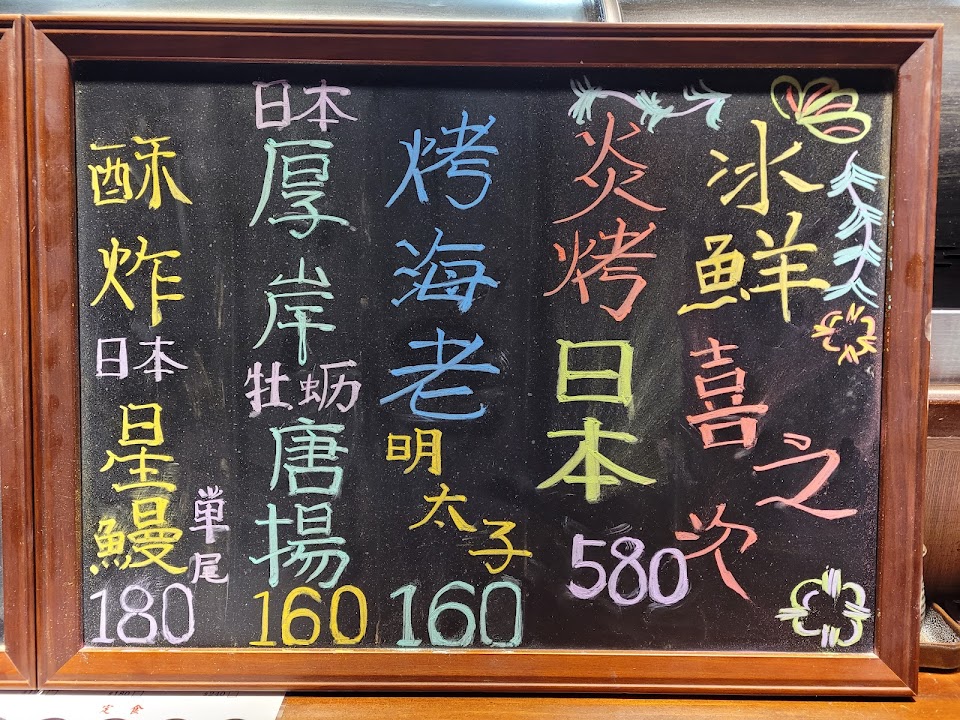 冰鮮
喜之次
炎烤
日本
580
烤海老
明太子
160
日本
厚岸
牡蛎
唐揚
160
酥炸
日本
星鰻
単尾
180
定食